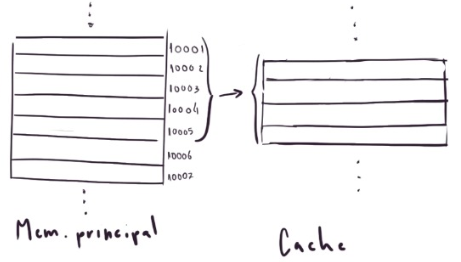 10001
10002
10003
10004
10005
10006
10007
Mem. principal
Cache